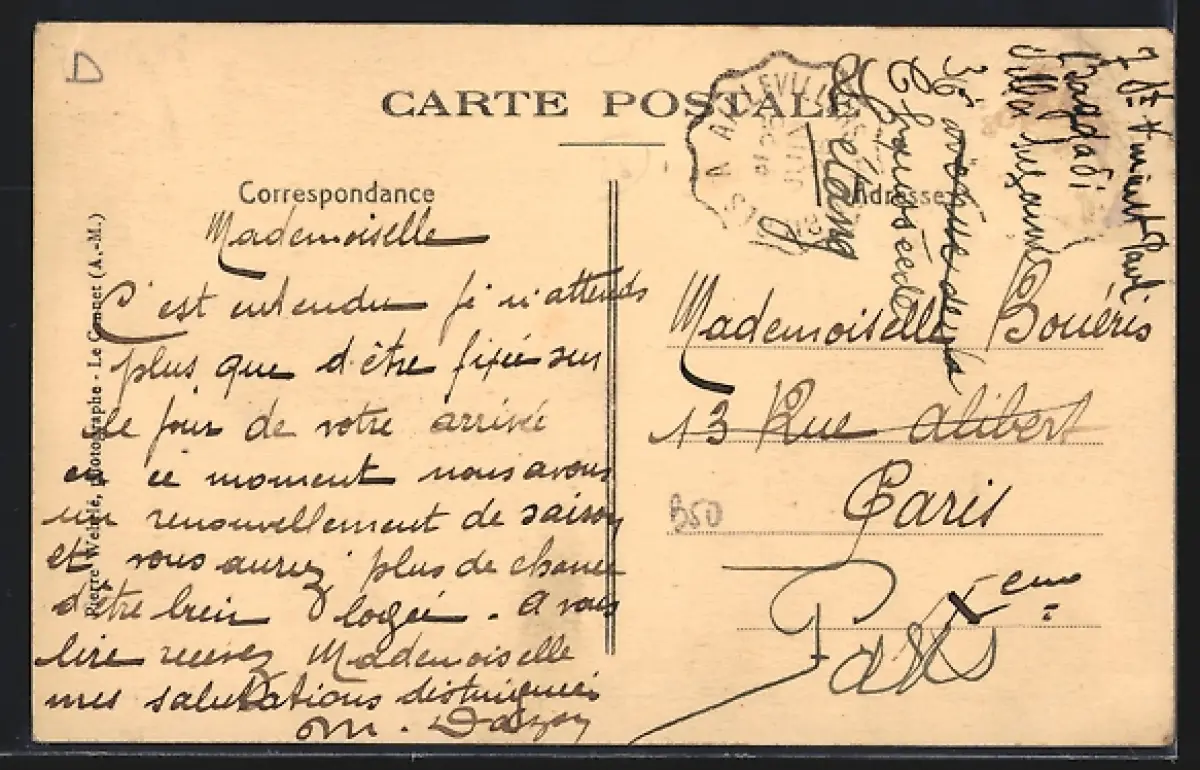 CARTE POSTALE
Correspondance
Adresse
Mademoiselle
C'est entendu je n'attends
plus que d'être fixée sur
le jour de votre arrivée
en ce moment nous avons
un renouvellement de saison
et vous auriez plus de chance
d'être bien logée. A vous
lire recevez Mademoiselle
mes salutations distinguées
M.
Mademoiselle Bouéris
13 Rue Alibert
Paris
X eme
Paris
étang
Villa Suzanne
Bagdadi
7 St Vincent Paul
B50
Pierre Wehrlé, photographe - Le Cannet (A.-M.)